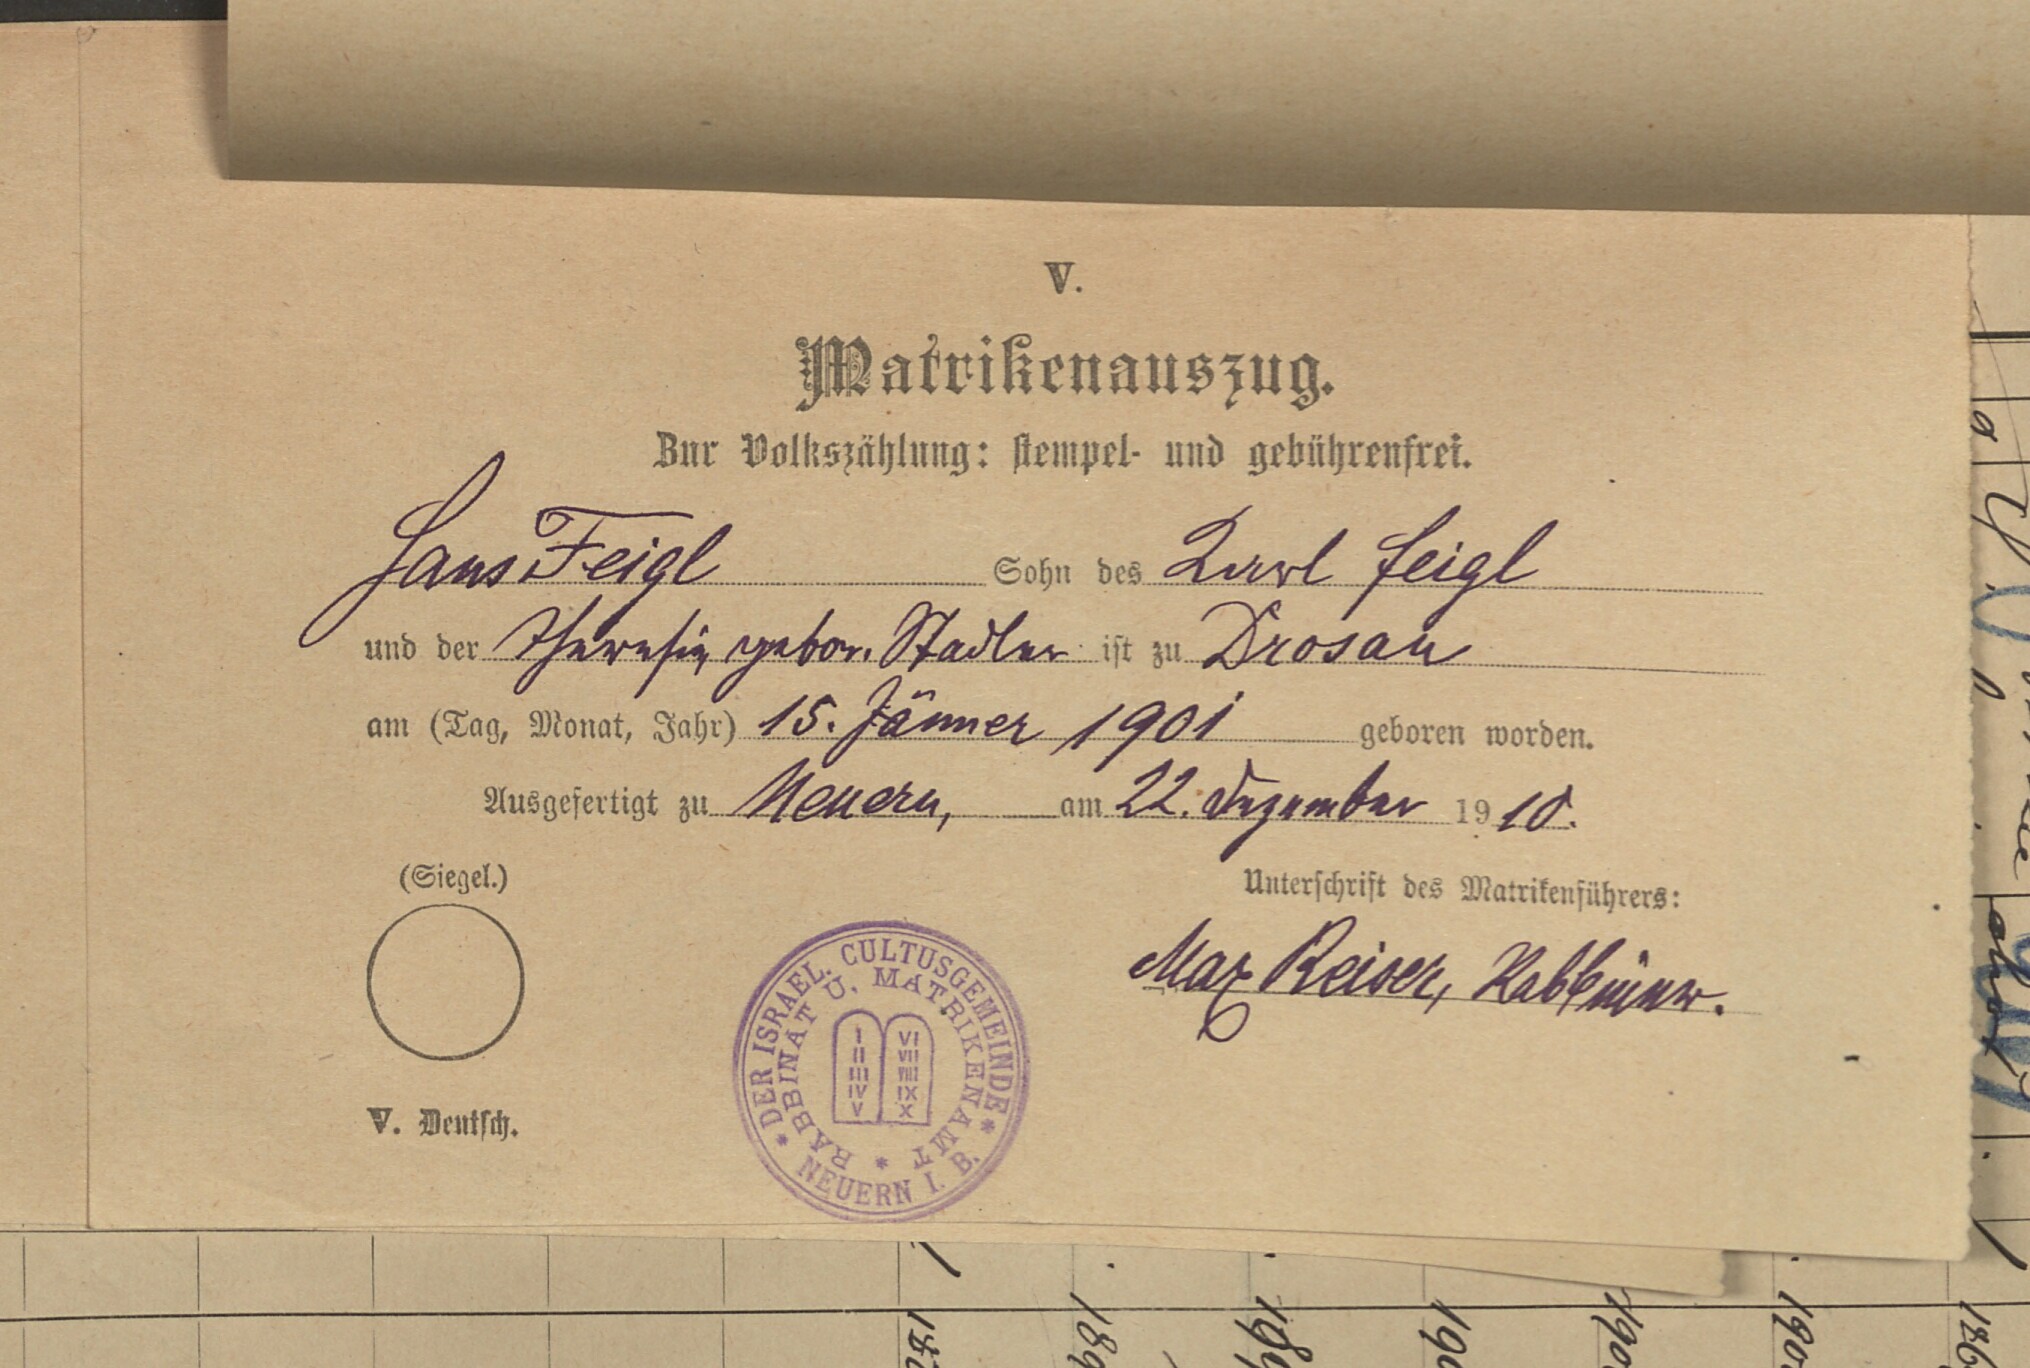 V.
Matrikenauszug.
Zur Volkszählung: stempel- und gebührenfrei.
Hans Feigl Sohn des Karl Feigl
und der Theresie, gebor. Stadler ist zu Drosau
am (Tag, Monat, Jahr) 15. Jänner 1901 geboren worden.
Ausgefertigt zu Neuern, am 22. Dezember 1910.
(Siegel.)
Unterschrift des Matrikenführers:
Max Reiser, Rabbiner.
* DER ISRAEL. CULTUSGEMEINDE *
NEUERN I. B.
RABBINAT U. MATRIKENAMT *
I VI
II VII
III VIII
IV IX
V X
V. Deutsch.